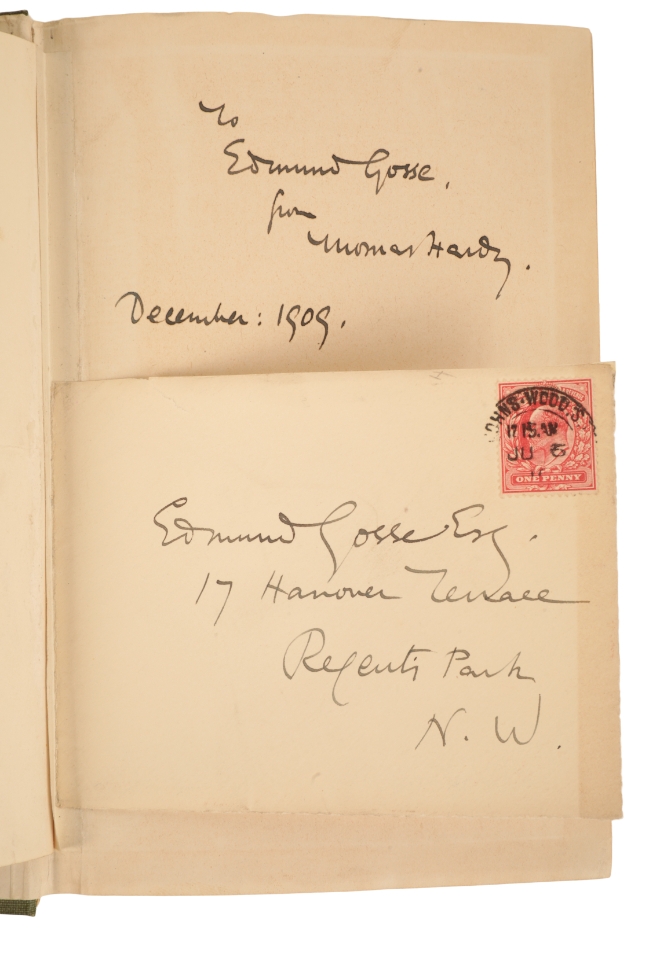 To
Edmund Gosse,
from
Thomas Hardy.
December: 1909.
OHNS·WOOD.S
JU
ONE PENNY
Edmund Gosse Esq.
17 Hanover Terrace
Regents Park
N. W.